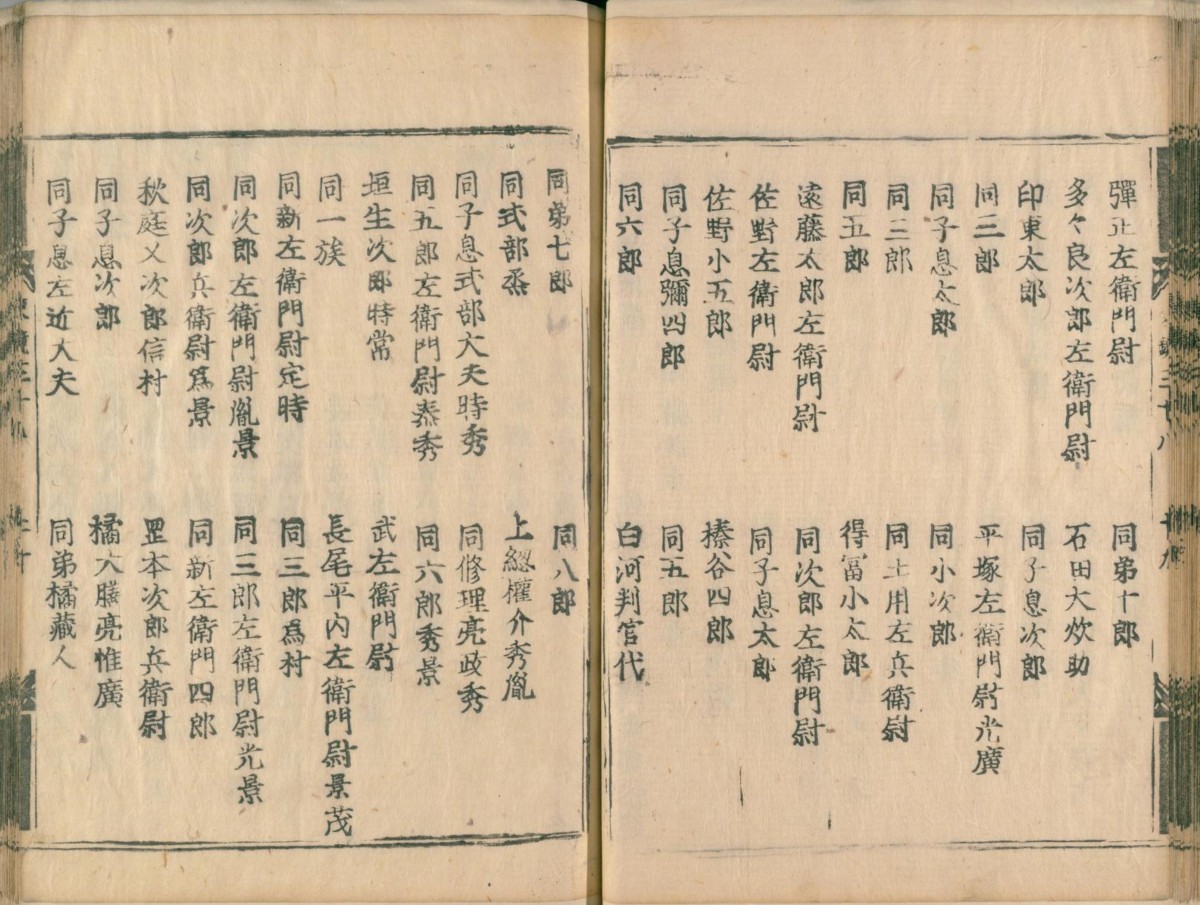 彈正左衛門尉 同弟十郎
多々良次郎左衛門尉 石田大炊助
印東太郎 同子息次郎
同三郎 平塚左衛門尉光廣
同子息太郎 同小次郎
同三郎 同土用左兵衛尉
同五郎 得冨小太郎
遠藤太郎左衛門尉 同次郎左衛門尉
佐野左衛門尉 同子息太郎
佐野小五郎 榛谷四郎
同子息彌四郎 同五郎
同六郎 白河判官代
同弟七郎 同八郎
同式部丞 上總權介秀胤
同子息式部大夫時秀 同修理亮政秀
同五郎左衛門尉泰秀 同六郎秀景
垣生次郎時常 武左衛門尉
同一族 長尾平内左衛門尉景茂
同新左衛門尉定時 同三郎爲村
同次郎左衛門尉胤景 同三郎左衛門尉光景
同次郎兵衛尉爲景 同新左衛門四郎
秋庭又次郎信村 罡本次郎兵衛尉
同子息次郎 橘大膳亮惟廣
同子息左近大夫 同弟橘藏人